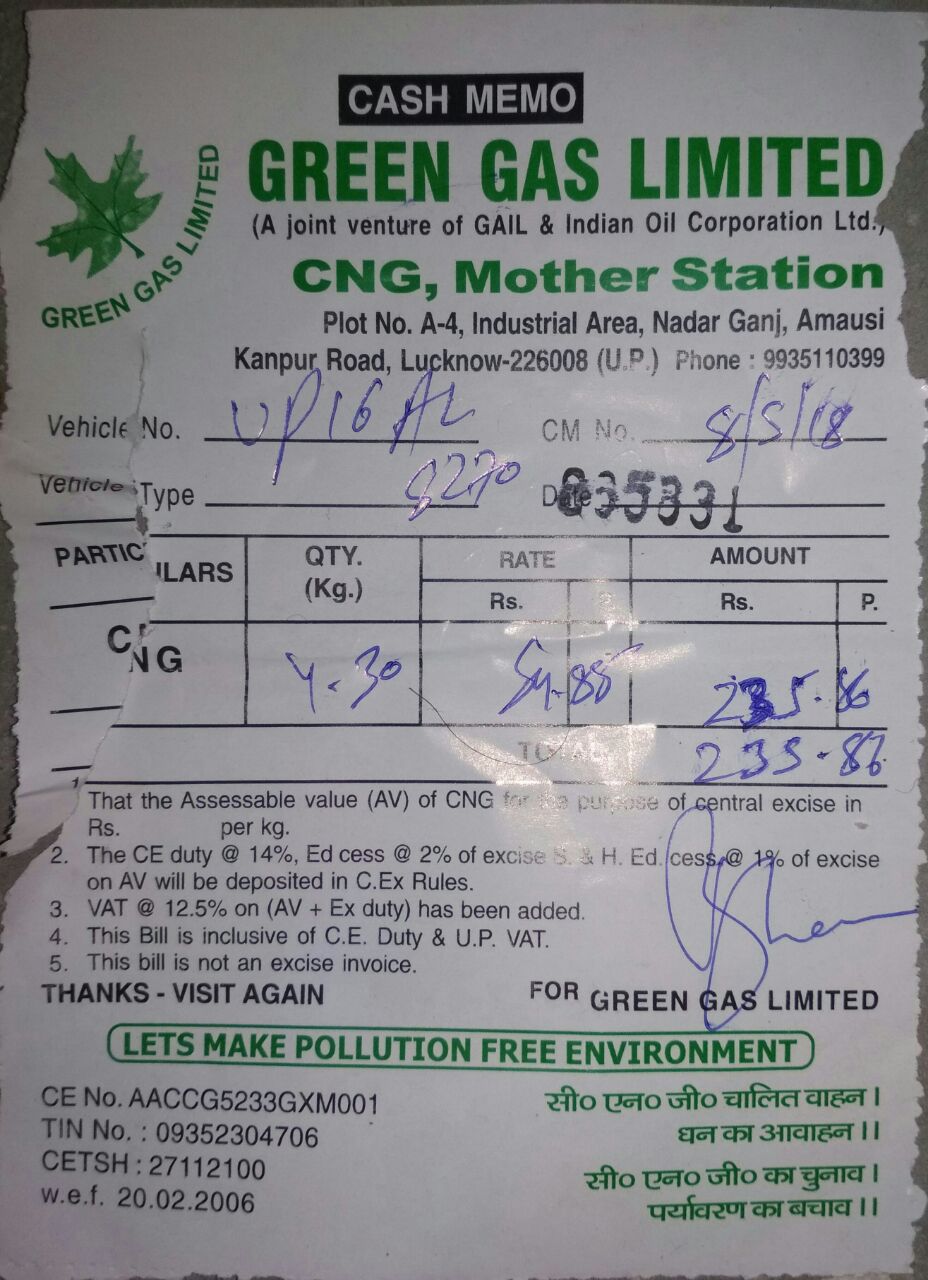 CASH MEMO
GREEN GAS LIMITED
GREEN GAS LIMITED
(A joint venture of GAIL & Indian Oil Corporation Ltd.)
CNG, Mother Station
Plot No. A-4, Industrial Area, Nadar Ganj, Amausi
Kanpur Road, Lucknow-226008 (U.P.) Phone : 9935110399
Vehicle No. UP16 AL CM No. 8/5/18
Vehicle Type 8270 Date 835331
PARTICULARS QTY. (Kg.) RATE AMOUNT
Rs. Rs. P.
CNG 4.30 54.85 235.86
TOTAL 235-86
1. That the Assessable value (AV) of CNG for the purpose of central excise in
Rs. per kg.
2. The CE duty @ 14%, Ed cess @ 2% of excise S. & H. Ed. cess @ 1% of excise
on AV will be deposited in C.Ex Rules.
3. VAT @ 12.5% on (AV + Ex duty) has been added.
4. This Bill is inclusive of C.E. Duty & U.P. VAT.
5. This bill is not an excise invoice.
THANKS - VISIT AGAIN FOR GREEN GAS LIMITED
LETS MAKE POLLUTION FREE ENVIRONMENT
CE No. AACCG5233GXM001
TIN No. : 09352304706
CETSH : 27112100
w.e.f. 20.02.2006
सी० एन० जी० चालित वाहन ।
धन का आवाहन ।।
सी० एन० जी० का चुनाव ।
पर्यावरण का बचाव ।।